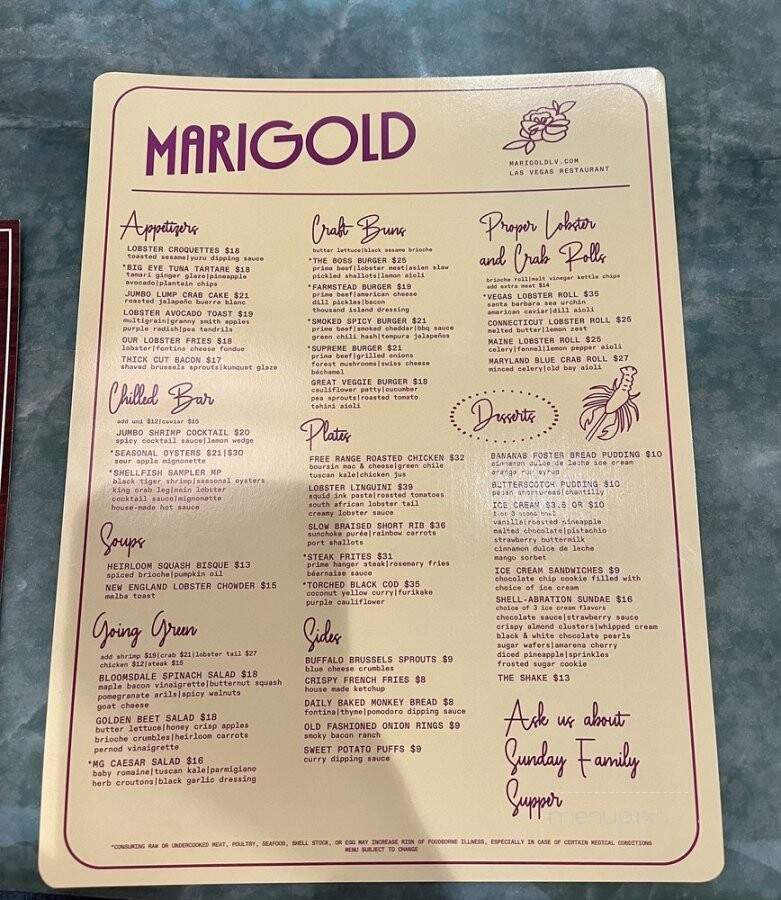 MARIGOLD
MARIGOLDLV.COM
LAS VEGAS RESTAURANT
Appetizers
LOBSTER CROQUETTES $18
toasted sesame|yuzu dipping sauce
*BIG EYE TUNA TARTARE $18
tamari ginger glaze|pineapple
avocado|plantain chips
JUMBO LUMP CRAB CAKE $21
roasted jalapeño buerre blanc
LOBSTER AVOCADO TOAST $19
multigrain|granny smith apples
purple radish|pea tendrils
OUR LOBSTER FRIES $18
lobster|fontina cheese fondue
THICK CUT BACON $17
shaved brussels sprouts|kumquat glaze
Chilled Bar
add uni $12|caviar $15
JUMBO SHRIMP COCKTAIL $20
spicy cocktail sauce|lemon wedge
*SEASONAL OYSTERS $21|$30
sour apple mignonette
*SHELLFISH SAMPLER MP
black tiger shrimp|seasonal oysters
king crab leg|main lobster
cocktail sauce|mignonette
house-made hot sauce
Soups
HEIRLOOM SQUASH BISQUE $13
spiced brioche|pumpkin oil
NEW ENGLAND LOBSTER CHOWDER $15
melba toast
Going Green
add shrimp $19|crab $21|lobster tail $27
chicken $12|steak $15
BLOOMSDALE SPINACH SALAD $18
maple bacon vinaigrette|butternut squash
pomegranate arils|spicy walnuts
goat cheese
GOLDEN BEET SALAD $18
butter lettuce|honey crisp apples
brioche crumbles|heirloom carrots
pernod vinaigrette
*MG CAESAR SALAD $16
baby romaine|tuscan kale|parmigiano
herb croutons|black garlic dressing
Craft Buns
butter lettuce|black sesame brioche
*THE BOSS BURGER $25
prime beef|lobster meat|asian slaw
pickled shallots|lemon aioli
*FARMSTEAD BURGER $19
prime beef|american cheese
dill pickles|bacon
thousand island dressing
*SMOKED SPICY BURGER $21
prime beef|smoked cheddar|bbq sauce
green chili hash|tempura jalapeños
*SUPREME BURGER $21
prime beef|grilled onions
forest mushrooms|swiss cheese
béchamel
GREAT VEGGIE BURGER $18
cauliflower patty|cucumber
pea sprouts|roasted tomato
tahini aioli
Plates
FREE RANGE ROASTED CHICKEN $32
boursin mac & cheese|green chile
tuscan kale|chicken jus
LOBSTER LINGUINI $39
squid ink pasta|roasted tomatoes
south african lobster tail
creamy lobster sauce
SLOW BRAISED SHORT RIB $36
sunchoke purée|rainbow carrots
port shallots
*STEAK FRITES $31
prime hanger steak|rosemary fries
béarnaise sauce
*TORCHED BLACK COD $35
coconut yellow curry|furikake
purple cauliflower
Sides
BUFFALO BRUSSELS SPROUTS $9
blue cheese crumbles
CRISPY FRENCH FRIES $8
house made ketchup
DAILY BAKED MONKEY BREAD $8
fontina|thyme|pomodoro dipping sauce
OLD FASHIONED ONION RINGS $9
smoky bacon ranch
SWEET POTATO PUFFS $9
curry dipping sauce
Proper Lobster
and Crab Rolls
brioche roll|malt vinegar kettle chips
add extra meat $14
*VEGAS LOBSTER ROLL $35
santa barbara sea urchin
american caviar|dill aioli
CONNECTICUT LOBSTER ROLL $25
melted butter|lemon zest
MAINE LOBSTER ROLL $25
celery|fennel|lemon pepper aioli
MARYLAND BLUE CRAB ROLL $27
minced celery|old bay aioli
Desserts
BANANAS FOSTER BREAD PUDDING $10
cinnamon dulce de leche ice cream
orange rum syrup
BUTTERSCOTCH PUDDING $10
pecan shortbread|chantilly
ICE CREAM $3.5 OR $10
1 or 3 scoop bowl
vanilla|roasted pineapple
malted chocolate|pistachio
strawberry buttermilk
cinnamon dulce de leche
mango sorbet
ICE CREAM SANDWICHES $9
chocolate chip cookie filled with
choice of ice cream
SHELL-ABRATION SUNDAE $16
choice of 3 ice cream flavors
chocolate sauce|strawberry sauce
crispy almond clusters|whipped cream
black & white chocolate pearls
sugar wafers|amarena cherry
diced pineapple|sprinkles
frosted sugar cookie
THE SHAKE $13
Ask us about
Sunday Family
Supper
*CONSUMING RAW OR UNDERCOOKED MEAT, POULTRY, SEAFOOD, SHELL STOCK, OR EGG MAY INCREASE RISK OF FOODBORNE ILLNESS, ESPECIALLY IN CASE OF CERTAIN MEDICAL CONDITIONS
MENU SUBJECT TO CHANGE